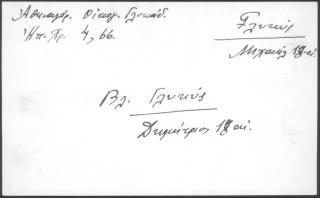 Αθηναγόρ. Οίκογ. Γλυκάδ.
Ηπ. Χρ. 4, 66.
Γλυκύς
Μιχαήλ 18 αι.
Βλ. Γλυκύς
Δημήτριος 18 αι.